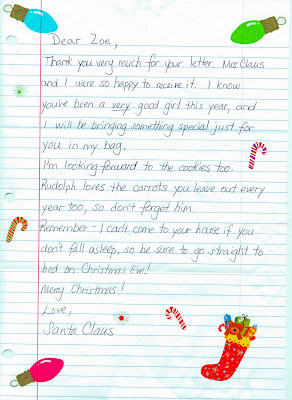 Dear Zoe,
Thank you very much for your letter. Mrs Claus
and I were so happy to receive it. I know
you've been a very good girl this year, and
I will be bringing something special just for
you in my bag.
I'm looking forward to the cookies too.
Rudolph loves the carrots you leave out every
year too, so don't forget him.
Remember - I can't come to your house if you
don't fall asleep, so be sure to go straight to
bed on Christmas Eve!
Merry Christmas!
Love,
Santa Claus